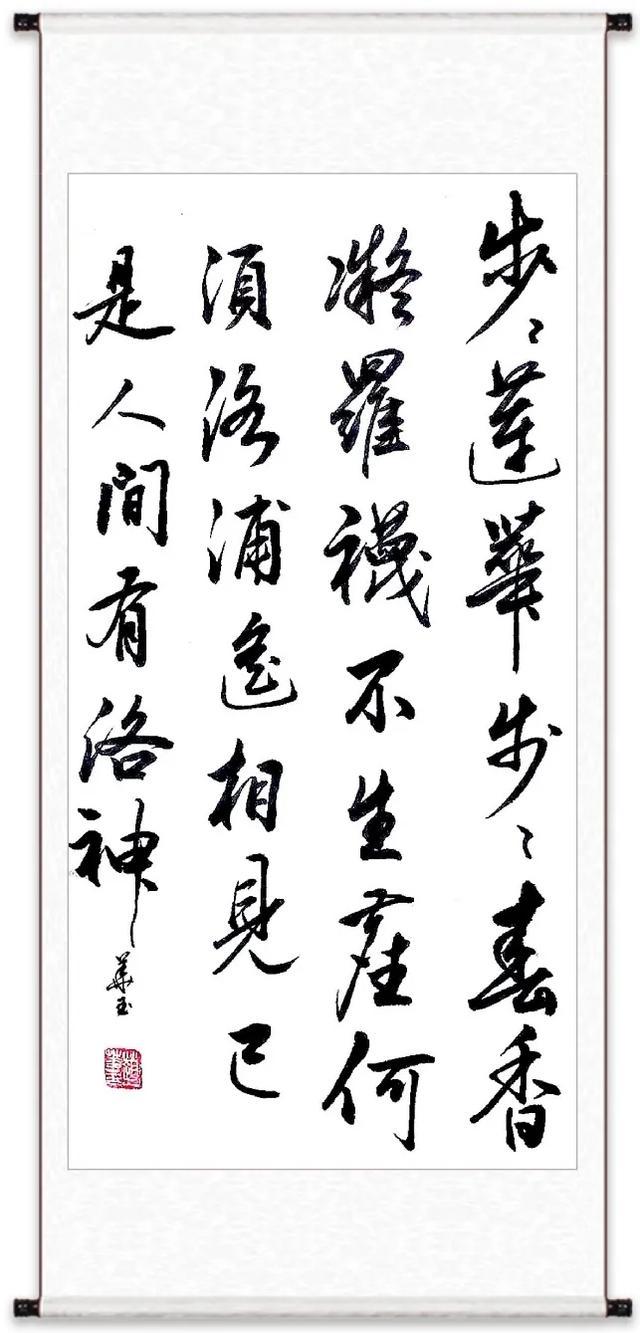 步〻蓮華步〻春香
凝羅襪不生塵何
須洛浦遙相見已
是人間有洛神
華玉